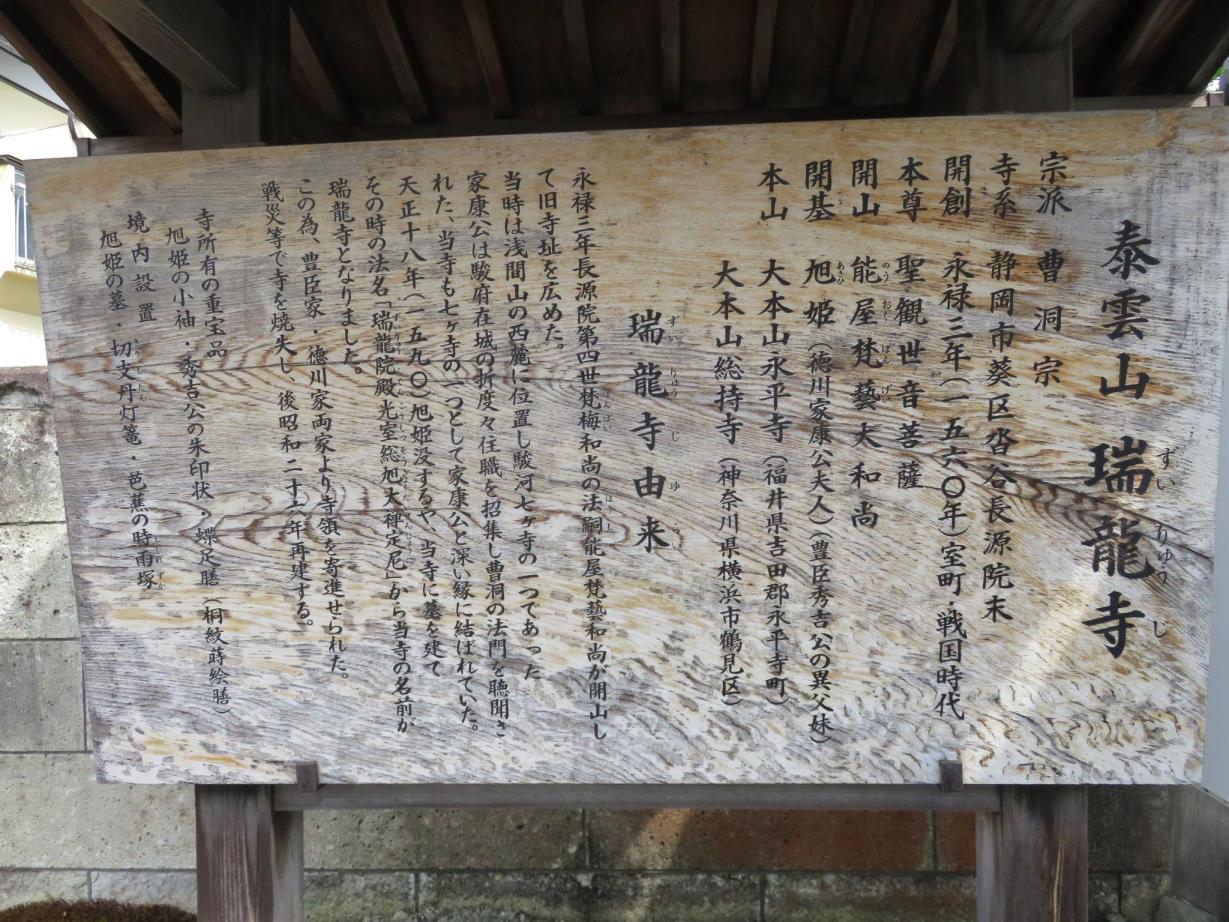 泰雲山 瑞龍寺
ずい りゅう じ
宗派 曹洞宗
寺系 静岡市葵区沓谷長源院末
開創 永禄三年(一五六〇年)室町・戦国時代
本尊 聖観世音菩薩
開山 能屋梵藝大和尚
のう おく ぼん げい
開基 旭姫(徳川家康公夫人)(豊臣秀吉公の異父妹)
あさひ
本山 大本山永平寺(福井県吉田郡永平寺町)
大本山総持寺(神奈川県横浜市鶴見区)
瑞龍寺由来
ずい りゅう じ ゆ らい
永禄三年長源院第四世梵梅和尚の法嗣能屋梵藝和尚が開山し
て旧寺址を広めた。
当時は浅間山の西麓に位置し駿河七ヶ寺の一つであった
家康公は駿府在城の折度々住職を招集し曹洞の法門を聴聞さ
れた、当寺も七ヶ寺の一つとして家康公と深い縁に結ばれていた。
天正十八年(一五九〇)旭姫没するや、当寺に墓を建て
その時の法名「瑞龍院殿光室総旭大禅定尼」から当寺の名前が
瑞龍寺となりました。
この為、豊臣家・徳川家両家より寺領を寄進せられた。
戦災等で寺を焼失し、後昭和二十六年再建する。
寺所有の重宝品
旭姫の小袖・秀吉公の朱印状・蝶足膳(桐紋蒔絵膳)
境内設置
旭姫の墓・切支丹灯篭・芭蕉の時雨塚